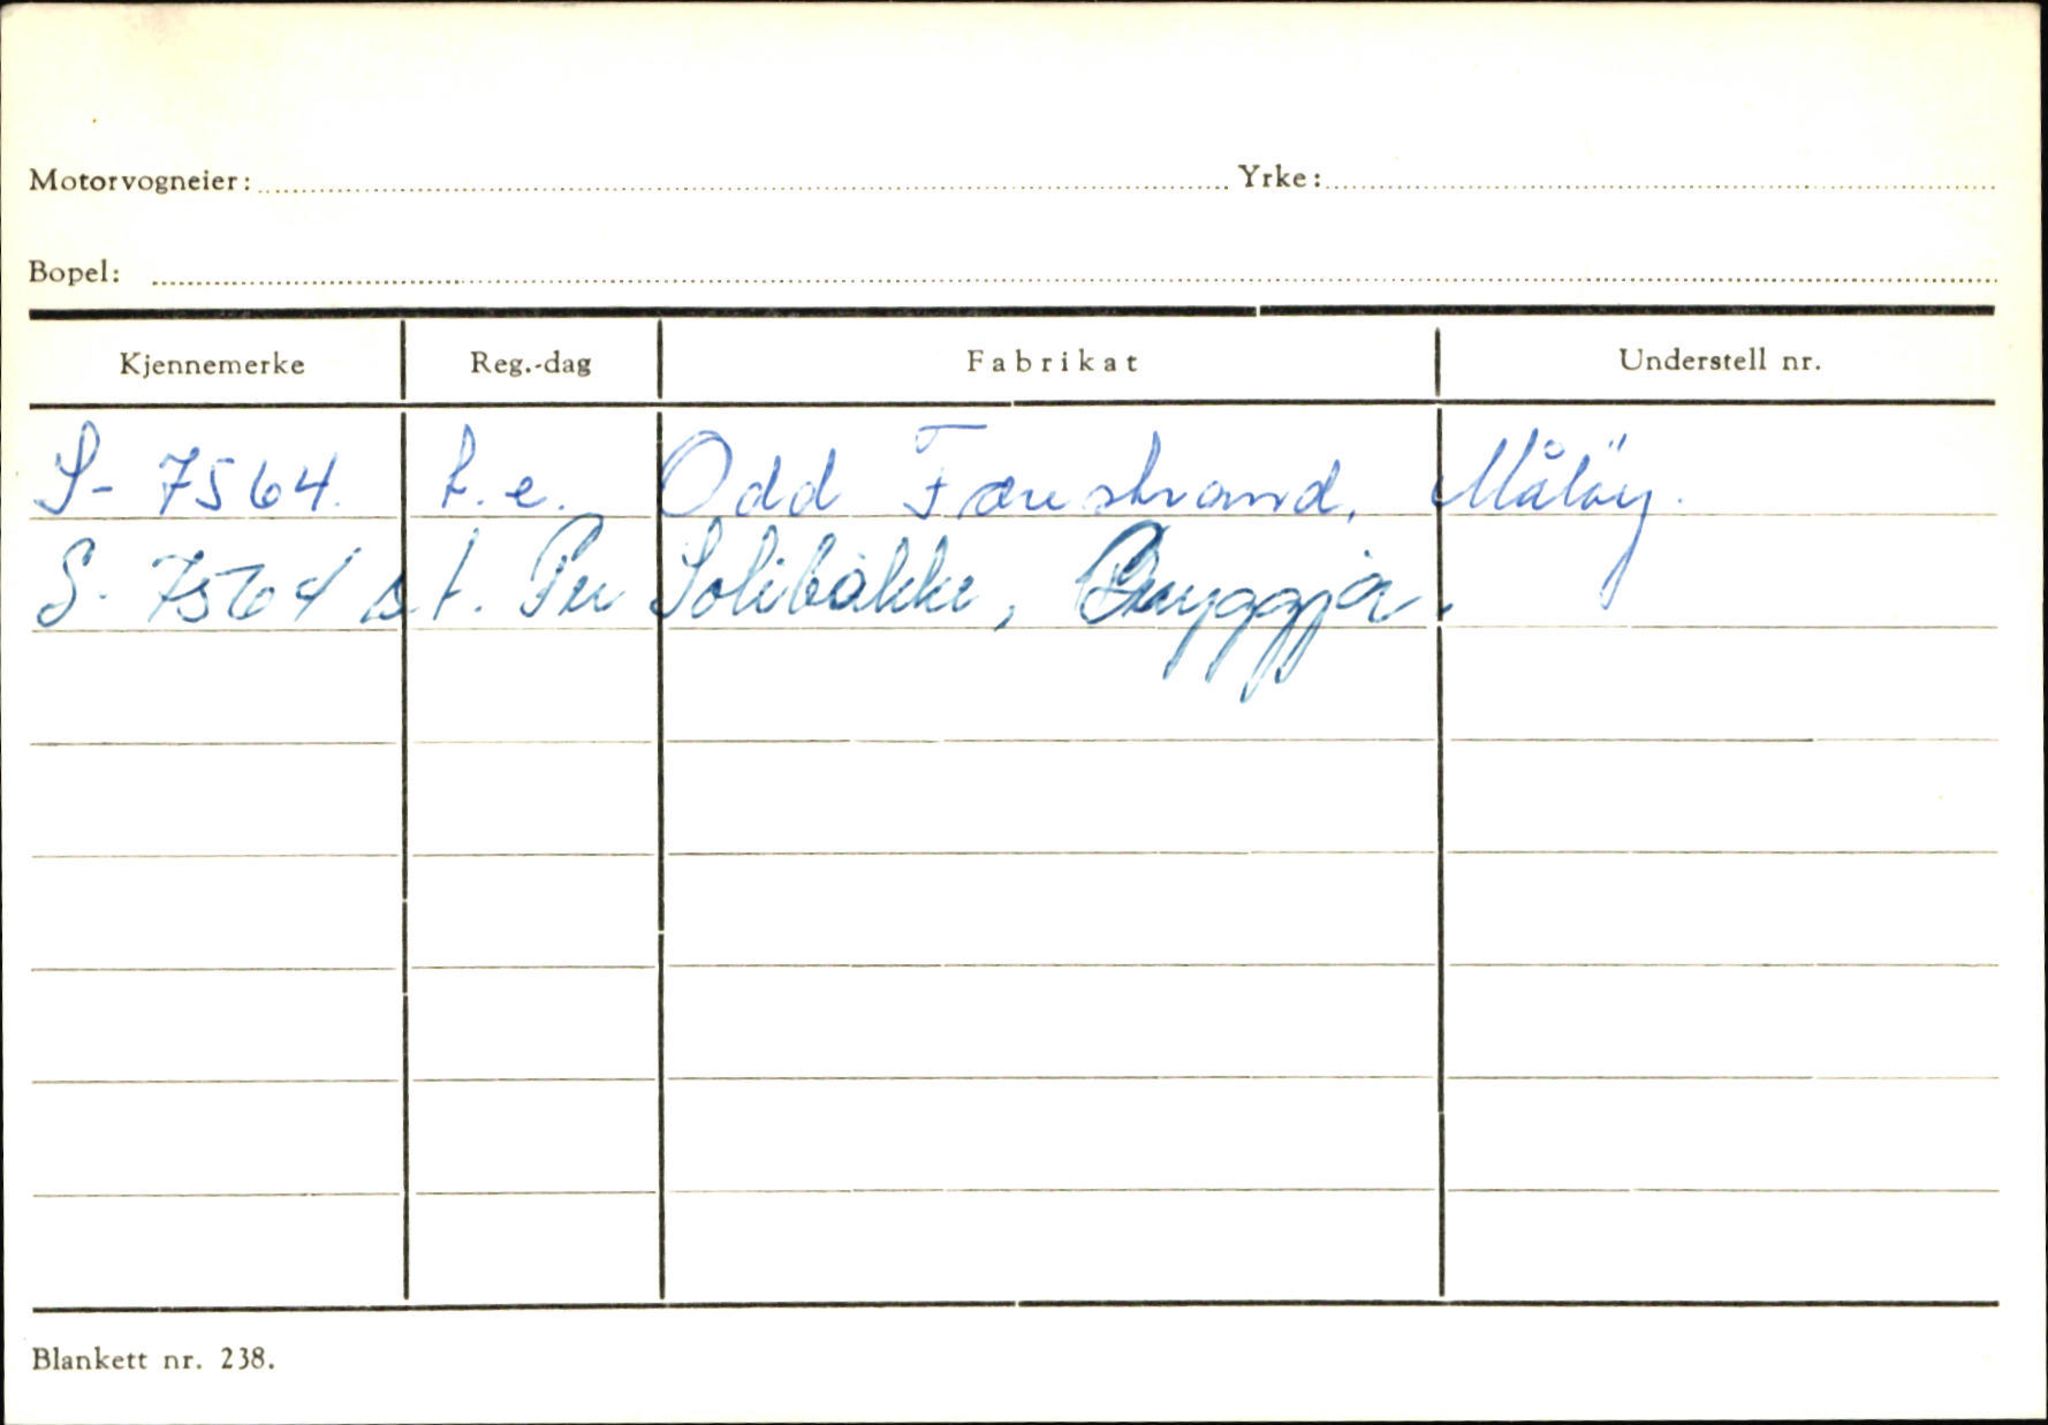 Motorvogneier: Yrke:
Bopel:
Kjennemerke Reg.-dag Fabrikat Understell nr.
S- 7564. t.e. Odd Færestrand, Måløy.
S. 7564 s.t. Per Solibakke, Bryggja.
Blankett nr. 238.